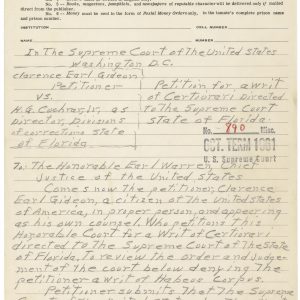 No. 5 — Books, magazines, pamphlets, and newspapers of reputable character will be delivered only if mailed
direct from the publisher.
No. 6 — Money must be sent in the form of Postal Money Orders only, in the inmate's complete prison name
and prison number.
INSTITUTION CELL NUMBER
NAME NUMBER
In The Supreme Court of The United States
Washington D.C.
Clarence Earl Gideon
Petitioner Petition for a writ
vs. of Certiorari Directed
H.G. Cochran, Jr. as to The Supreme Court
Director, Divisions State of Florida.
of corrections State No. 790 Misc.
of Florida. OCT. TERM 1961
U. S. Supreme Court
To: The Honorable Earl Warren, Chief
Justice of the United States
Comes now the petitioner, Clarence
Earl Gideon, a citizen of the United states
of America, in proper person, and appearing
as his own counsel. Who petitions this
Honorable Court for a Writ of Certiorari
directed to The Supreme Court of The State
of Florida, To review the order and Judge-
ment of the court below denying The
petitioner a writ of Habeus Corpus.
Petitioner submits That The Supreme